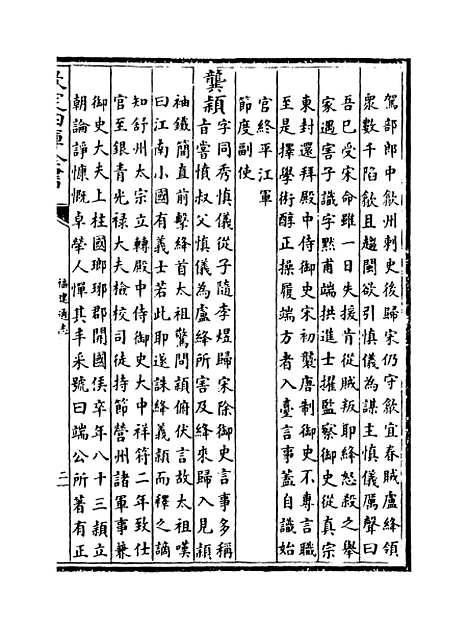 駕部郎中歙州刺史後歸宋仍守歙宜春賊盧絳領
衆數千陷歙且趨閩欲引慎儀為謀主慎儀厲聲曰
吾已受宋命雖一日失接肯從賊叛耶絳怒殺之舉
家遇害子識字黙甫端拱進士擢監察御史從真宗
東封還拜殿中侍御史宋初襲唐制御史不專言職
至是擇學術醇正操履端方者入臺言事蓋自識始
官終平江軍
節度副使
龔穎字同秀慎儀從子隨李煜歸宋除御史言事多稱
旨嘗憤叔父慎儀為盧絳所害及絳來歸入見穎
袖鐵簡直前擊絳首太祖驚問穎俯伏言故太祖嘆
曰江南小國有義士若此耶遂誅絳義穎而釋之謫
知舒州太宗立轉殿中侍御史大中祥符二年致仕
官至銀青光禄大夫檢校司徒持節營州諸軍事兼
御史大夫上柱國瑯琊郡開國侯卒年八十三穎立
朝論諍慷慨卓犖人憚其丰采號曰端公所著有正
欽定四庫全書
福建通志
二